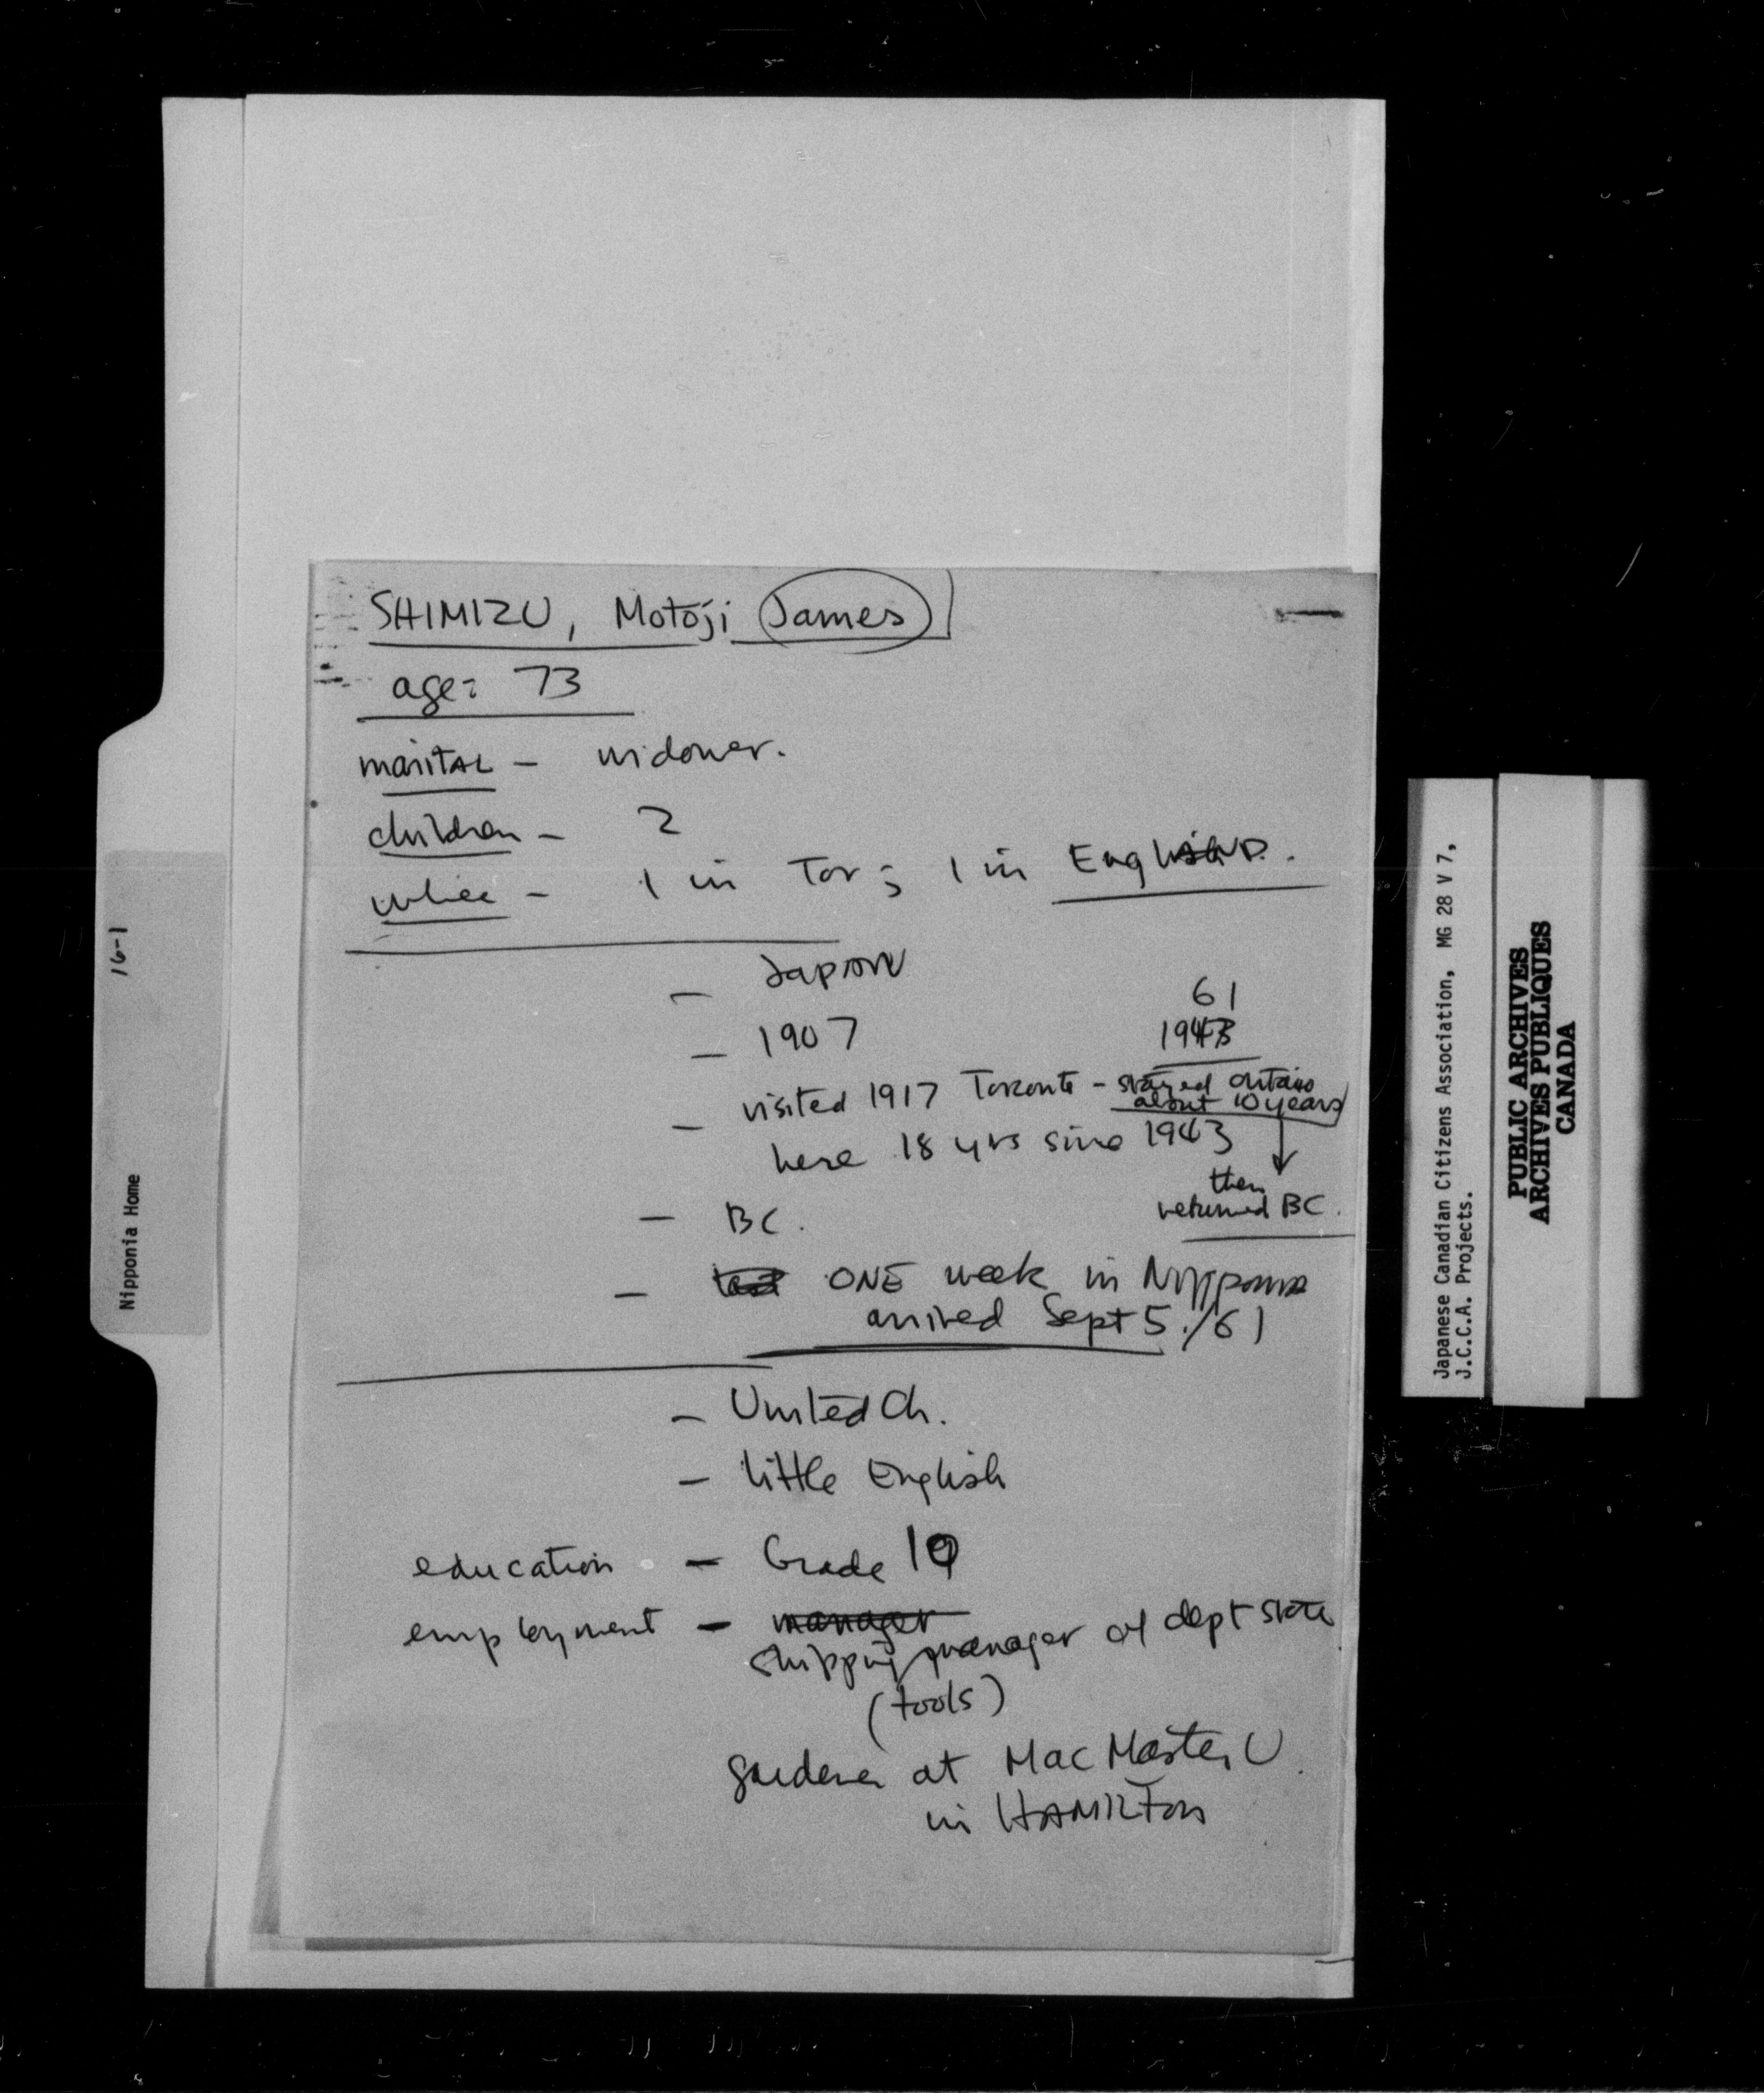 SHIMIZU, Motoji James
age: 73
marital - widower.
children - 2
where - 1 in Tor; 1 in England.
- Japan
61
- 1907
1943
- visited 1917 Toronto - stayed Ontario
about 10 years
here 18 yrs since 1943
then
returned BC.
- BC.
- ONE week in Nipponia
arrived Sept 5./61
- United Ch.
- little English
education - Grade 10
employment - manager
shipping manager of dept store
(tools)
gardener at MacMaster U.
in HAMILTON
Nipponia Home 16-1
Japanese Canadian Citizens Association, MG 28 V 7,
J.C.C.A. Projects.
PUBLIC ARCHIVES
ARCHIVES PUBLIQUES
CANADA